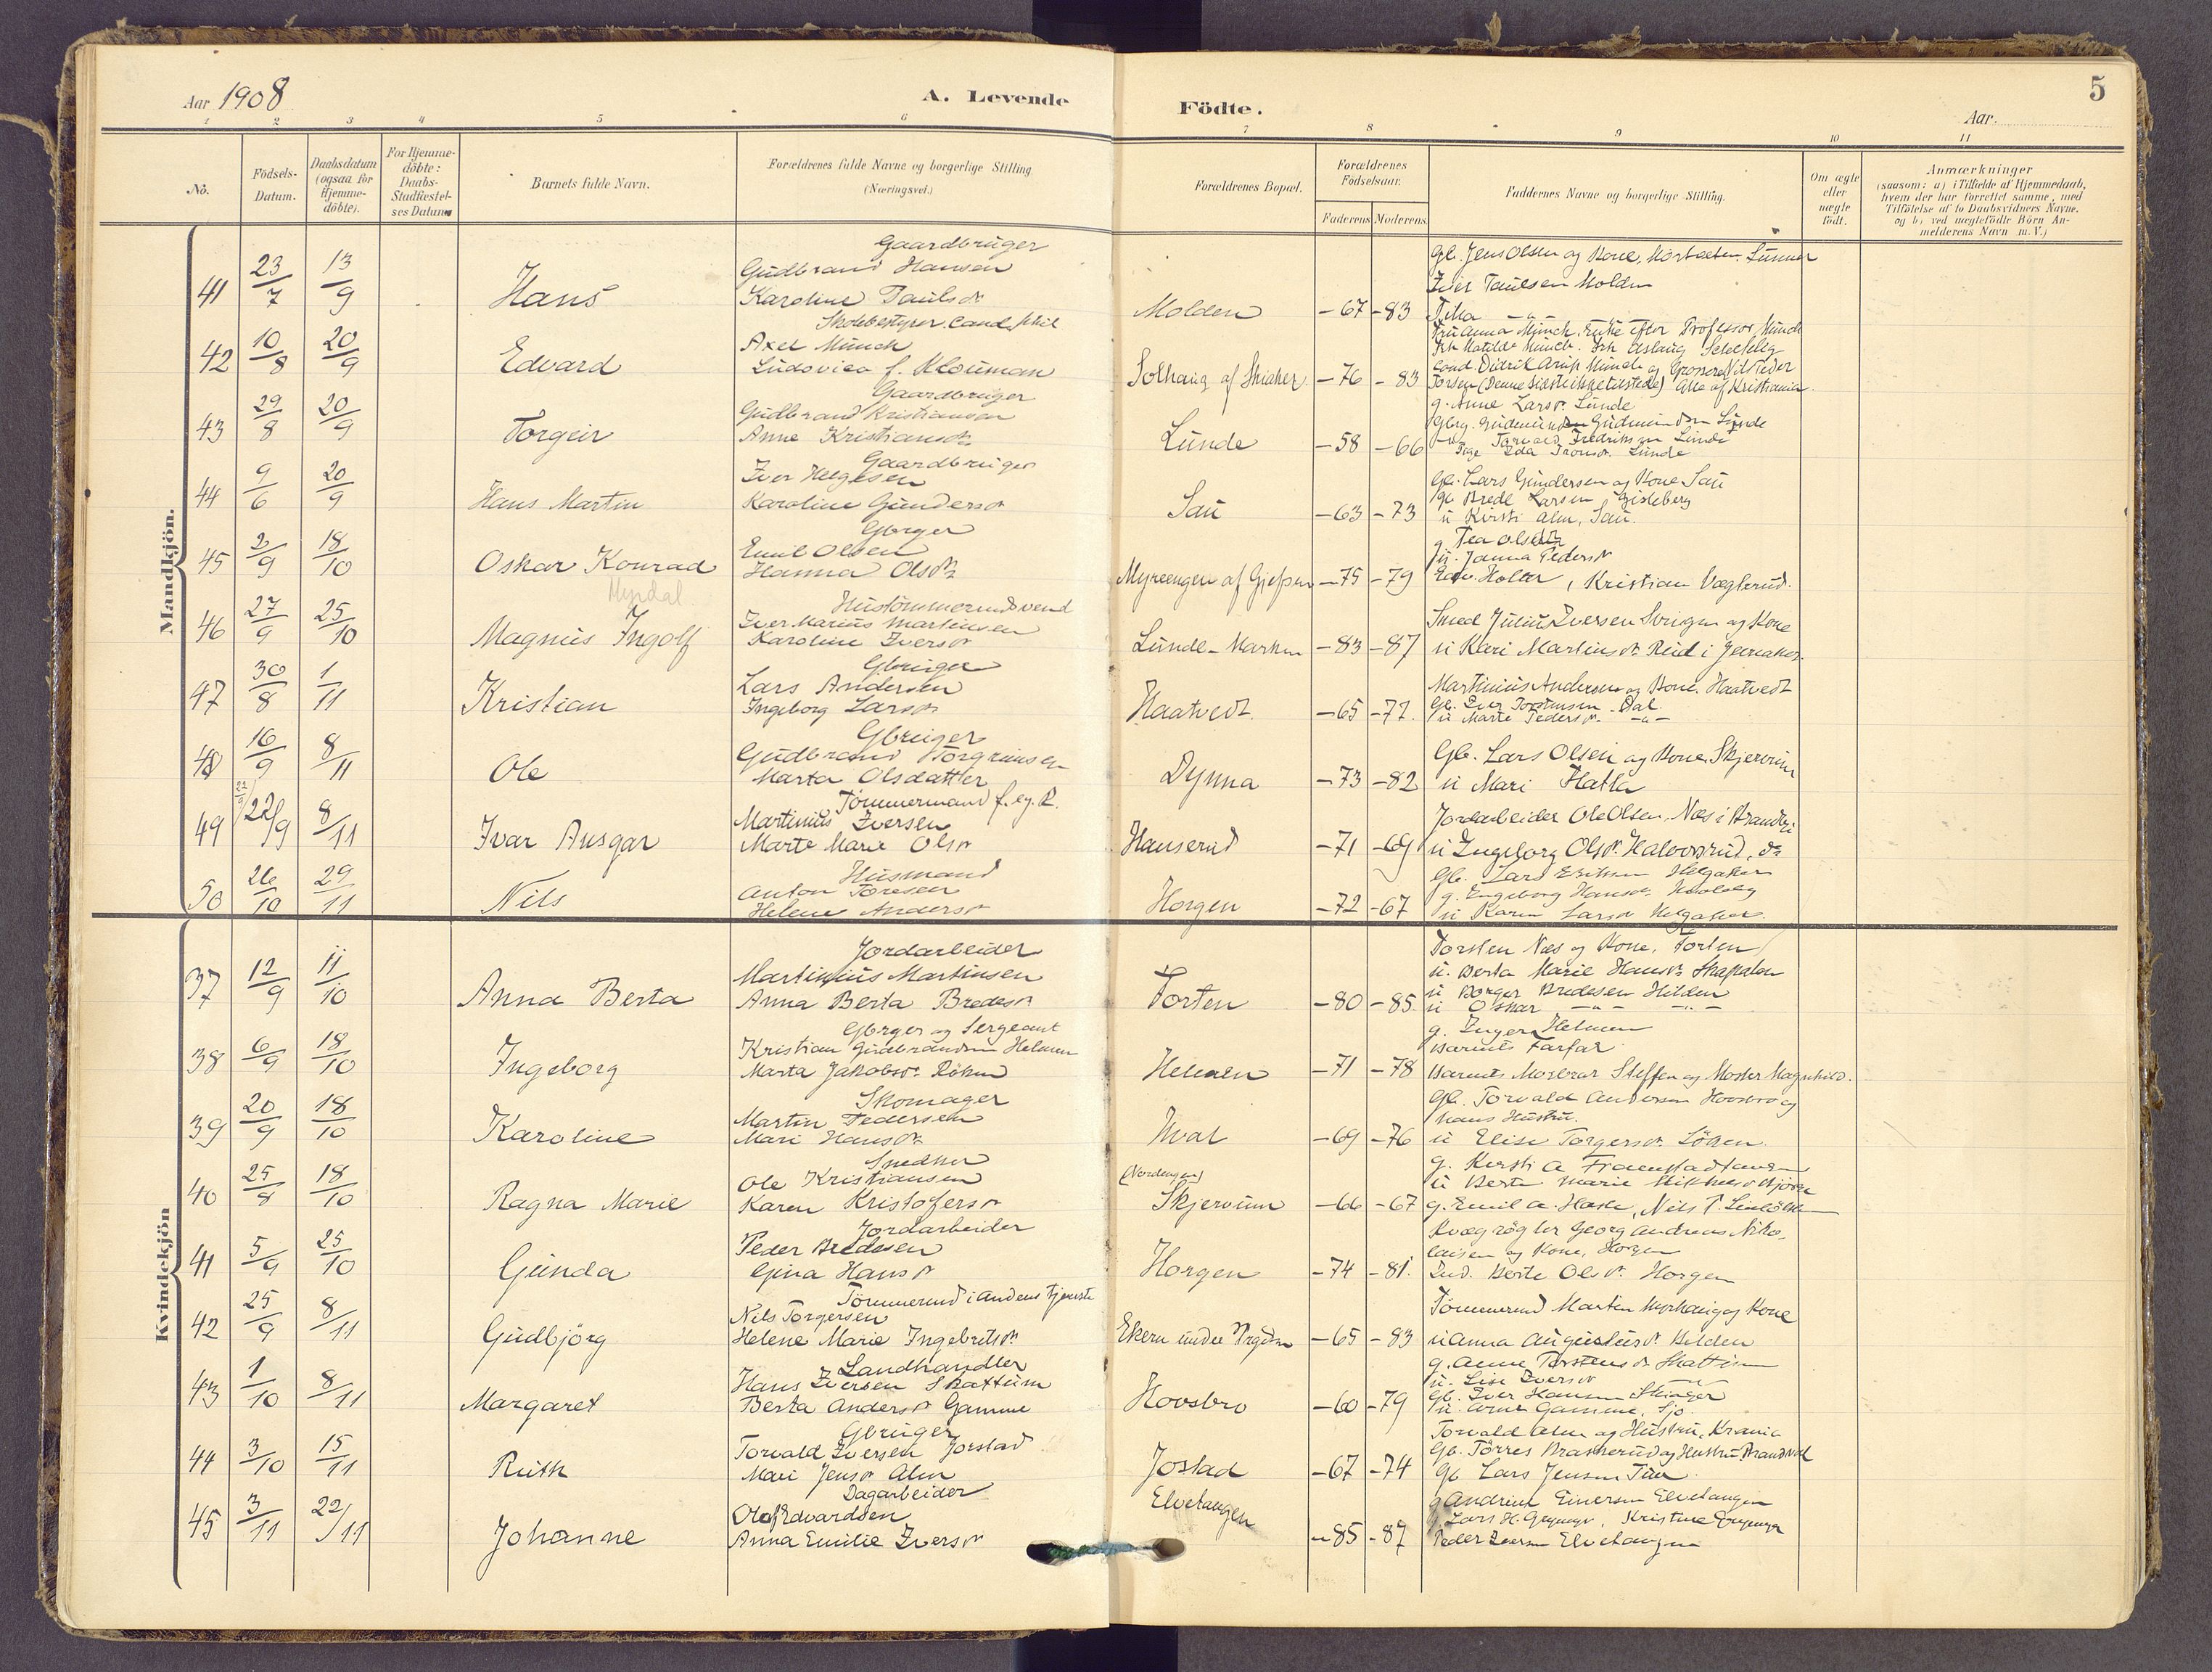 Aar 1908
A. Levende
Födte.
5
Aar
1 2 3 4 5 6 7 8 9 10 11
No.
Födsels-Datum.
Daabsdatum (ogsaa for Hjemme-döbte).
For Hjemme-döbte: Daabs-Stadfæstel-ses Datum
Barnets fulde Navn.
Forældrenes fulde Navne og borgerlige Stilling (Næringsvei.)
Forældrenes Bopæl.
Forældrenes Födselsaar.
Faderens Moderens
Faddernes Navne og borgerlige Stilling.
Om ægte eller uægte födt.
Anmærkninger
(saasom: a) i Tilfælde af Hjemmedaab,
hvem der har forrettet samme, med
Tilföielse af to Daabsvidners Navne.
og b) ved uægtefödte Börn An-
melderens Navn m. V.)
Mandkjön.
41 23/7 13/9 Hans
Gaardbruger
Gudbrand Hansen
Karoline Paulsdr
Molden -67 -83
Gb. Jens Olsen og Kone, Lunner
Iver Paulsen Molden
42 10/8 20/9 Edvard
Skolebestyrer. Cand. phil
Axel Münch
Ludovica f. Klouman
Solhaug af Skiaker -76 -83
Fru Anna Münch. Enke efter Professor Münch
Frk Matilde Münch. Frk Aslaug
Cand. Didrik Arup Münch og Grosserer
(Denne sidste ikke tilstede) Alle af Kristiania
43 29/8 20/9 Torgeir
Gaardbruger
Gudbrand Kristiansen
Anne Kristiansdr
Lunde -58 -66
g. Anne Larsdr. Lunde
Gudmundsen Lunde
Fredriksen Lunde
Pige Ida Lunde
44 9/6 20/9 Hans Martin
Gaardbruger
Iver Helgesen
Karoline Gundersdr
Sau -63 -73
Gb. Lars Gundersen og Kone Sau
Gb Bredl Larsen Gisleberg
u Kirsti Alm, Sau.
45 2/9 18/10 Oskar Konrad
Myrdal
Gbrger
Emil Olsen
Hanna Olsdtr
Myreengen af Gjefsen -75 -79
g Tea Olsdtr
u. Janna Pedersdr
Edv. Holter, Kristian Vægterud.
46 27/9 25/10 Magnus Ingolf
Hustömmermdsvend
Iver Marius Martinsen
Karoline Iversdr
Lunde-Marken -83 -87
Smed Julius Iversen og Kone
u Kari Martinsdr. Rud i Jevnaker.
47 30/8 1/11 Kristian
Gbruger
Lars Andersen
Ingeborg Larsdr
Haatvedt. -65 -77.
Martinius Andersen og Kone. Haatvedt
Gb. Iver Torstensen. Dal
u Marte Pedersdr. -"-
48 16/9 8/11 Ole
Gbruger
Gudbrand Torgrimsen
Marta Olsdatter
Dynna -73 -82
Gb. Lars Olsen og Kone. Skjervum
u Mari Hatla
49 22/9 8/11 Ivar Ansgar
Tömmermand f. eg. R.
Martinius Iversen
Marte Marie Olsdr
Hanserud -71 -69
Jordarbeider Ole Olsen. Næs i Brandbu
u Ingeborg Olsdr. Halvorsrud, do
50 26/10 29/11 Nils
Husmand
Anton Toresen
Helene Andersdr
Horgen -72 -67
Gb. Lars Eriksen Helgaker
g. Engeborg Hansdr.
u Karen Larsdr Helgaker.
Kvindekjön
37 12/9 11/10 Anna Berta
Jordarbeider
Martinius Martinsen
Anna Berta Bredesdr
Torten -80 -85
Torsten Næs og Kone, Torten
u. Berta Marie Hansdr.
u Borger Bredesen Hilden
u Oskar -"- -"-
38 6/9 18/10 Ingeborg
Gbrger og Sergeant
Kristian Gudbrandsen Helmen
Marta Jakobsdr. Röken
Helmen -71 -78
g. Inger Helmen
Barnets Farfar
Barnets Morbror Steffen og Moster Magnhild.
39 20/9 18/10 Karoline
Skomager
Martin Pedersen
Mari Hansdr
Hval -69 -76
Gb. Torvald Andersen Hovsbro og
hans Hustru.
u Elise Torgersdr. Löken
40 25/8 18/10 Ragna Marie
Snedker
Ole Kristiansen
Karen Kristofersdr
(Nordengen)
Skjervum -66 -67
g. Kirsti A
u Berte Marie
g. Emil A. Hake, Nils P.
41 5/9 25/10 Gunda
Jordarbeider
Peder Bredesen
Gina Hansdr
Horgen -74 -81.
Kvægrögter Georg Andreas Niko-
laisen og Kone, Horgen
Ind. Berte Olsdr. Horgen
42 25/9 8/11 Gudbjörg
Tömmermd i Andens tjeneste
Nils Torgersen
Helene Marie Ingebretsdr
Ekern under -65 -83
Tömmermd Martin Myrhaug og Kone
u Anna Augustusdr. Hilden
43 1/10 8/11 Margaret
Landhandler
Hans Iversen Skattum
Berta Andersdr Gamme
Hovsbro -60 -79
g. Anne Torstensdr Skattum
u. Lise Iversdr -"-
Gb. Iver Hansen
u. Arne Gamme.
44 3/10 15/11 Ruth
Gbruger
Torvald Iversen Jorstad
Mari Jensdr Alm
Jostad -67 -74
Torvald Alm og Hustru, Krania
Gb. Törres og Hustru, Brandval
Gb Lars Jensen
45 3/11 22/11 Johanne
Dagarbeider
Olaf Edvardsen
Anna Emilie Iversdr
Elvetangen -85 -87
g Andrine Einersen Elvetangen
Lars H. Grymyr, Kristine Grymyr
Peder Iversen Elvetangen